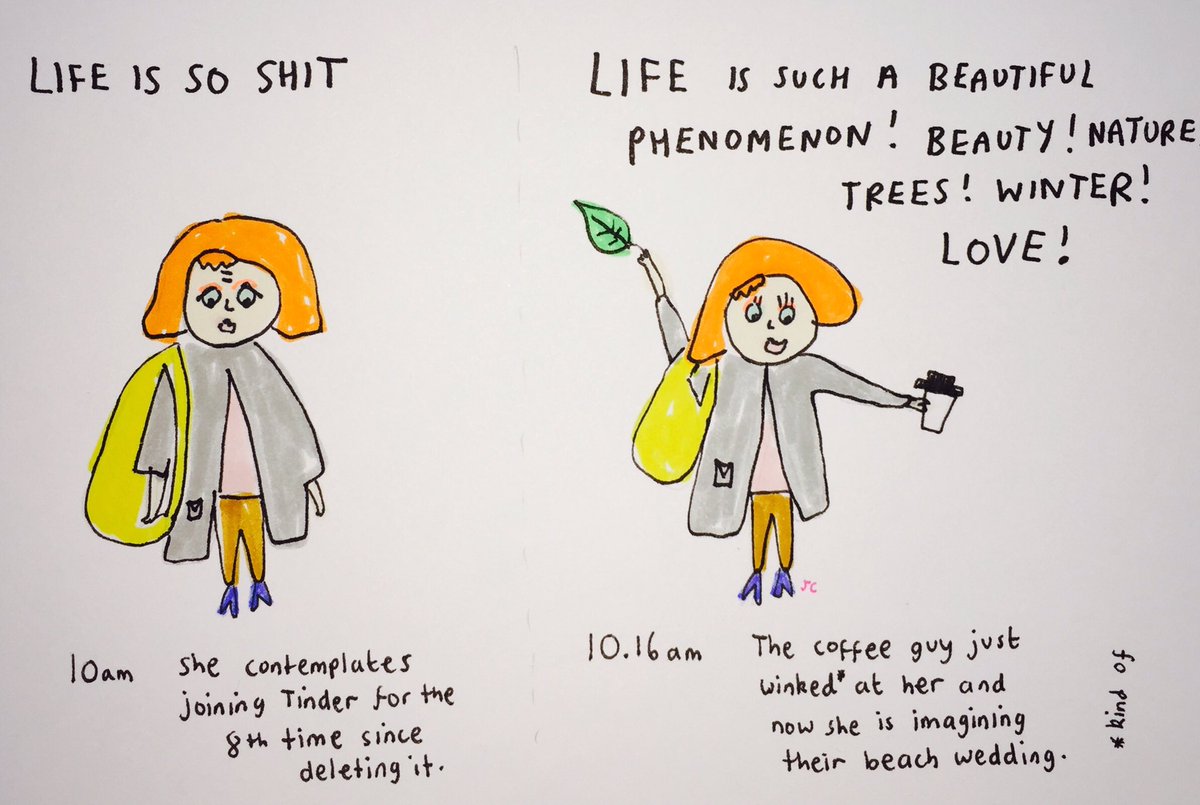 LIFE IS SO SHIT
10am
She contemplates
joining Tinder for the
8th time since
deleting it.
LIFE IS SUCH A BEAUTIFUL
PHENOMENON! BEAUTY! NATURE,
TREES! WINTER!
LOVE!
rc
10.16am
The coffee guy just
winked* at her and
now she is imagining
their beach wedding.
* kind of